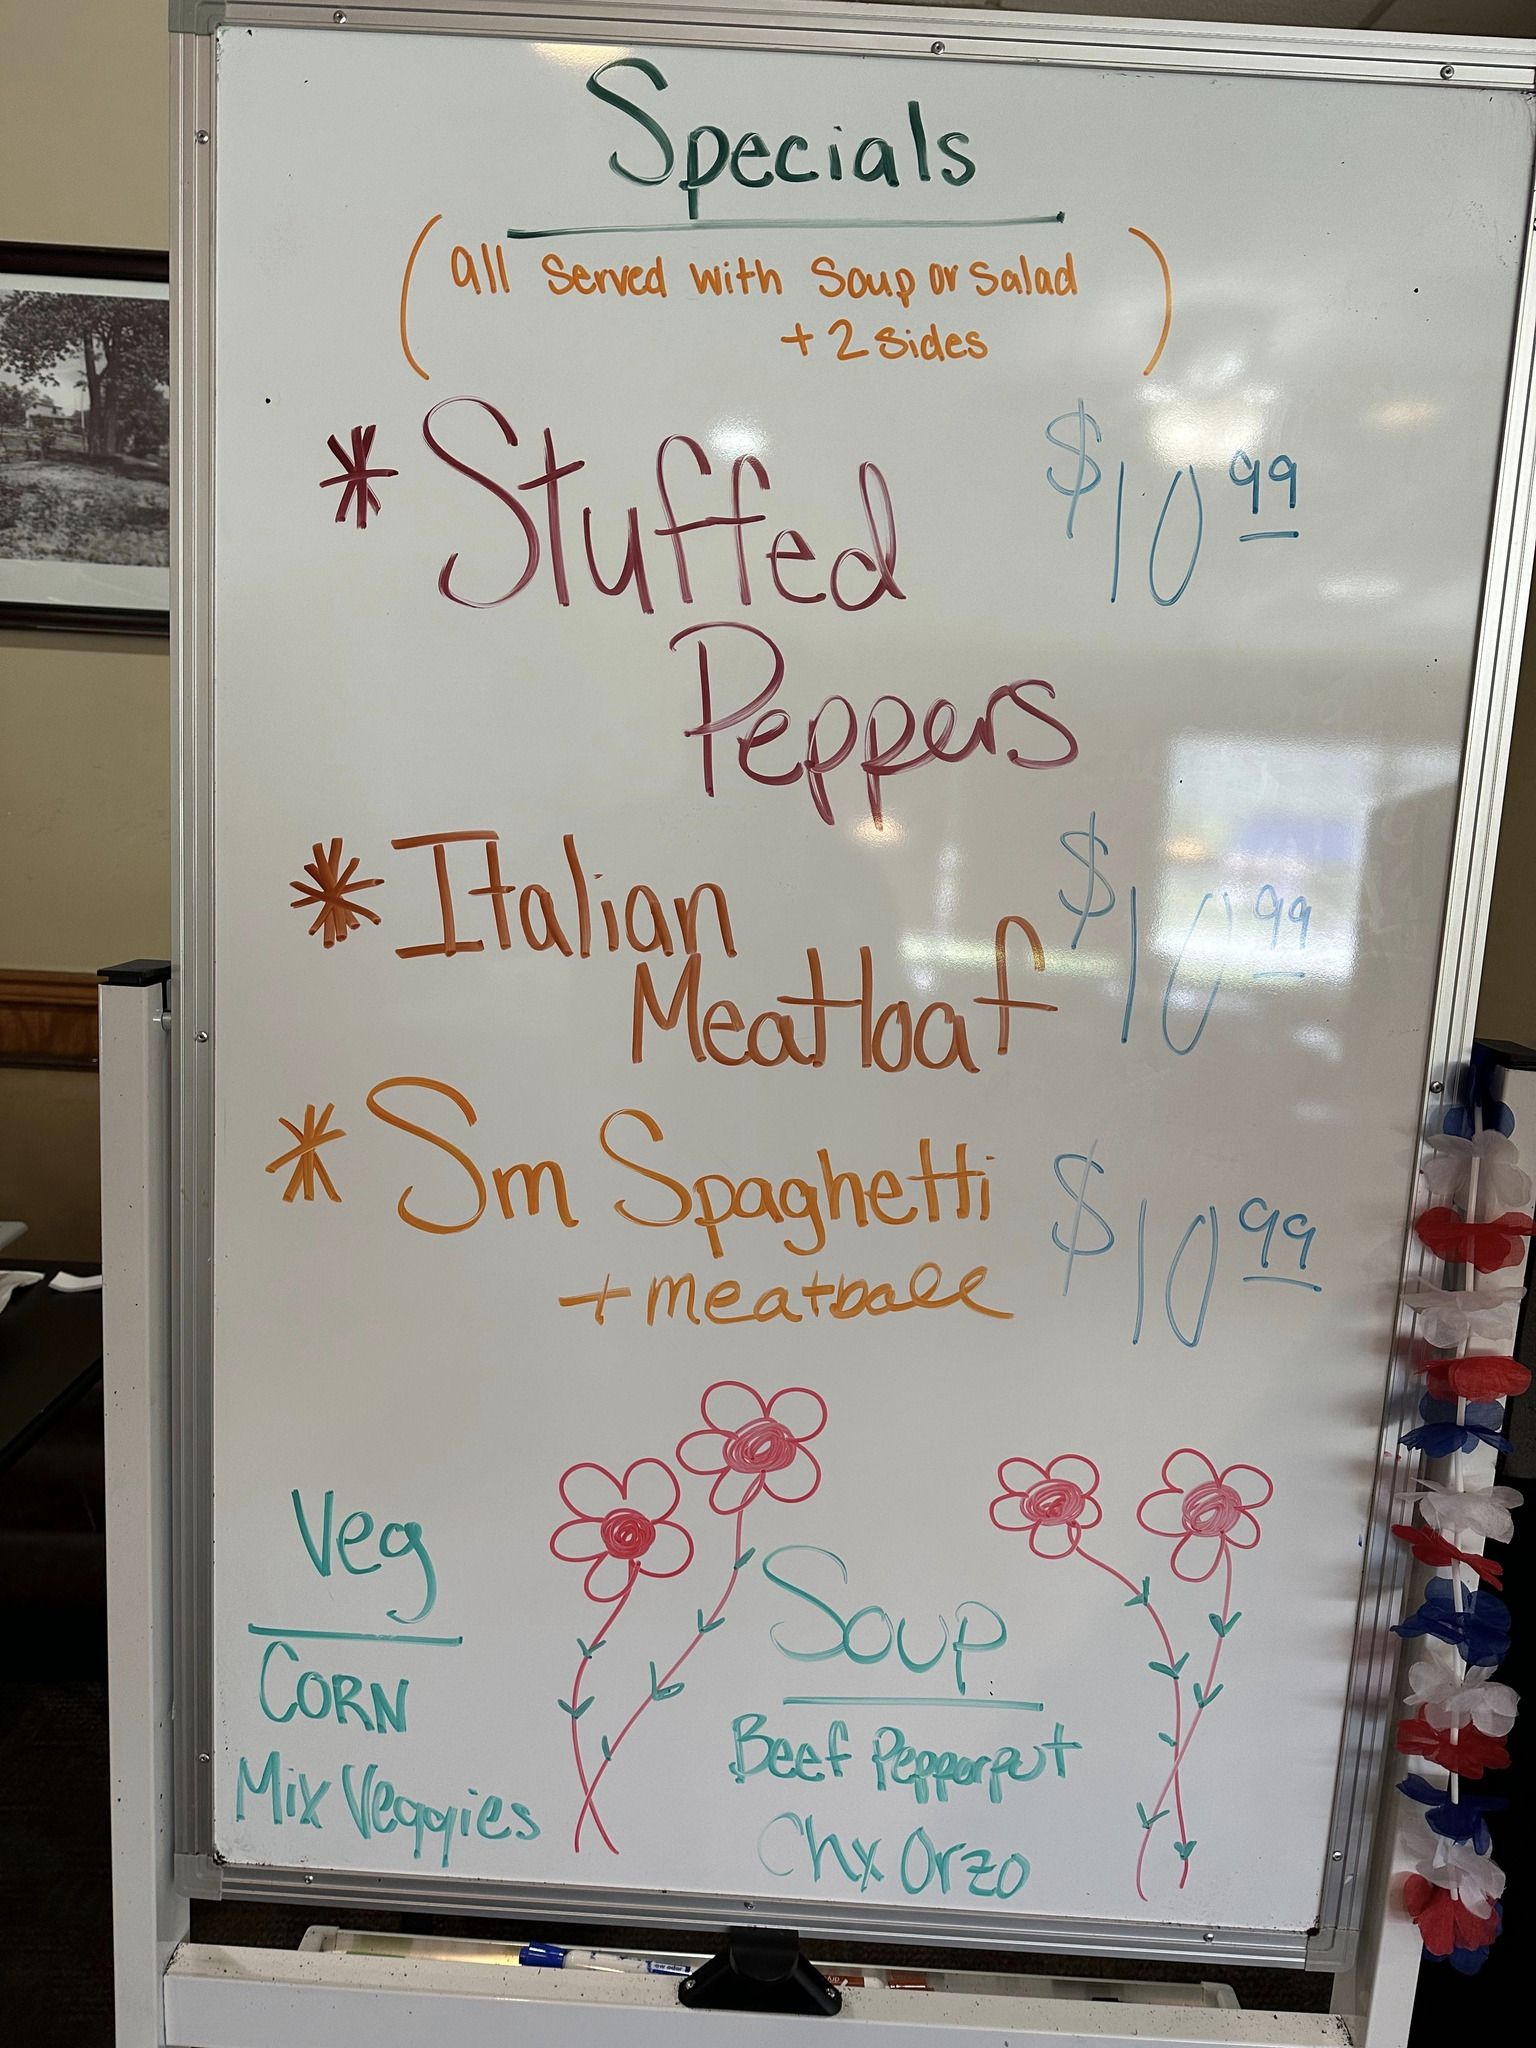 Specials
(all served with soup or salad
+ 2 sides)
* Stuffed $10.99
Peppers
* Italian $10.99
Meatloaf
* Sm Spaghetti $10.99
+ meatball
Veg
CORN
Mix Veggies
Soup
Beef Pepperput
Chx Orzo